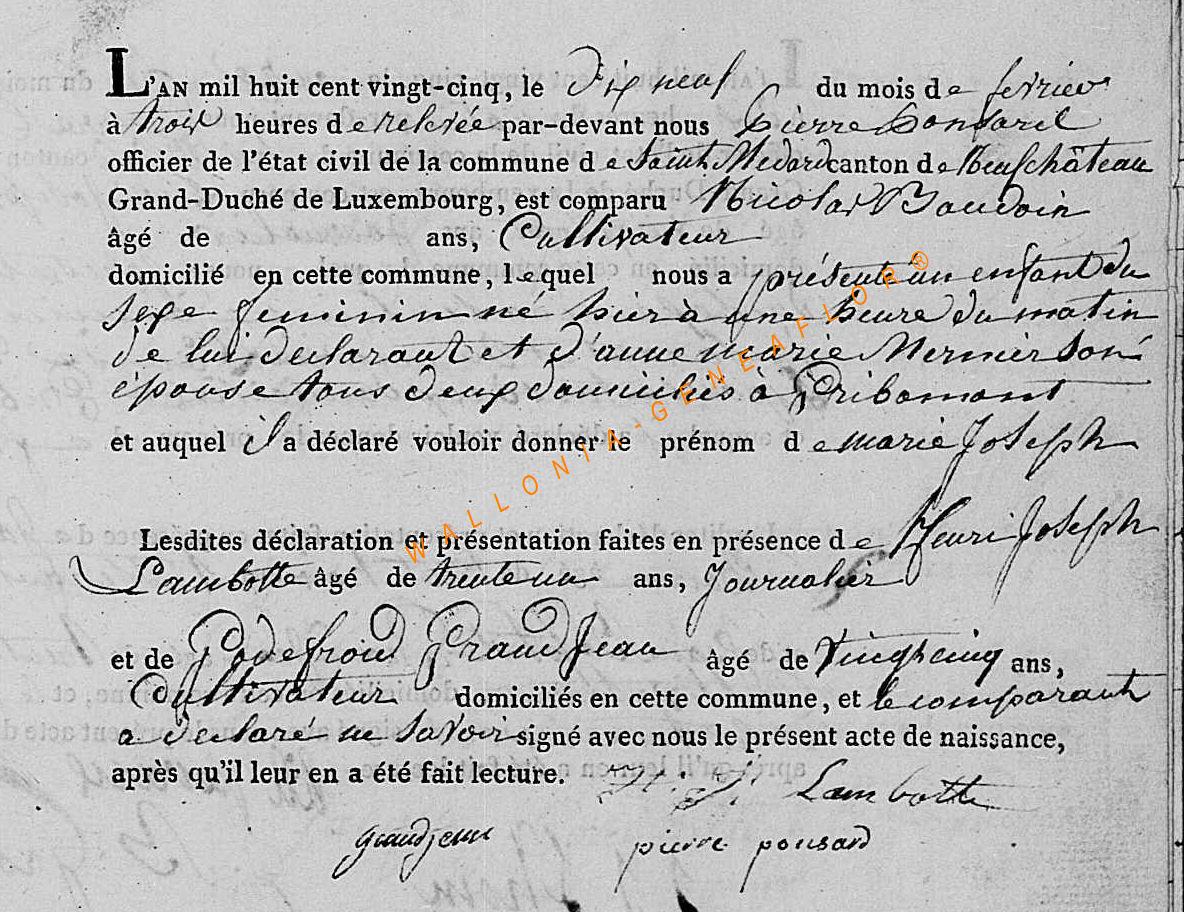 L'AN mil huit cent vingt-cinq, le Dix neuf du mois de fevrier
à trois heures de relevée par-devant nous Pierre Ponsard
officier de l'état civil de la commune de Saint Medard canton de Neufchâteau
Grand-Duché de Luxembourg, est comparu Nicolas Baudoin
âgé de ans, Cultivateur
domicilié en cette commune, lequel nous a présenté un enfant du
sexe feminin né hier à une heure du matin
de lui declarant et d'anne marie Mernier son
épouse tous deux domiciliés à Gribomont
et auquel il a déclaré vouloir donner le prénom de marie Joseph
Lesdites déclaration et présentation faites en présence de Henri Joseph
Lambotte âgé de trente un ans, Journalier
et de Godefroid GrandJean âgé de vingt cinq ans,
Cultivateur domiciliés en cette commune, et le comparant
a declaré ne savoir signé avec nous le présent acte de naissance,
après qu'il leur en a été fait lecture. H. J. Lambotte
grandjean pierre ponsard
WALLONIA-GENEAFLOR®